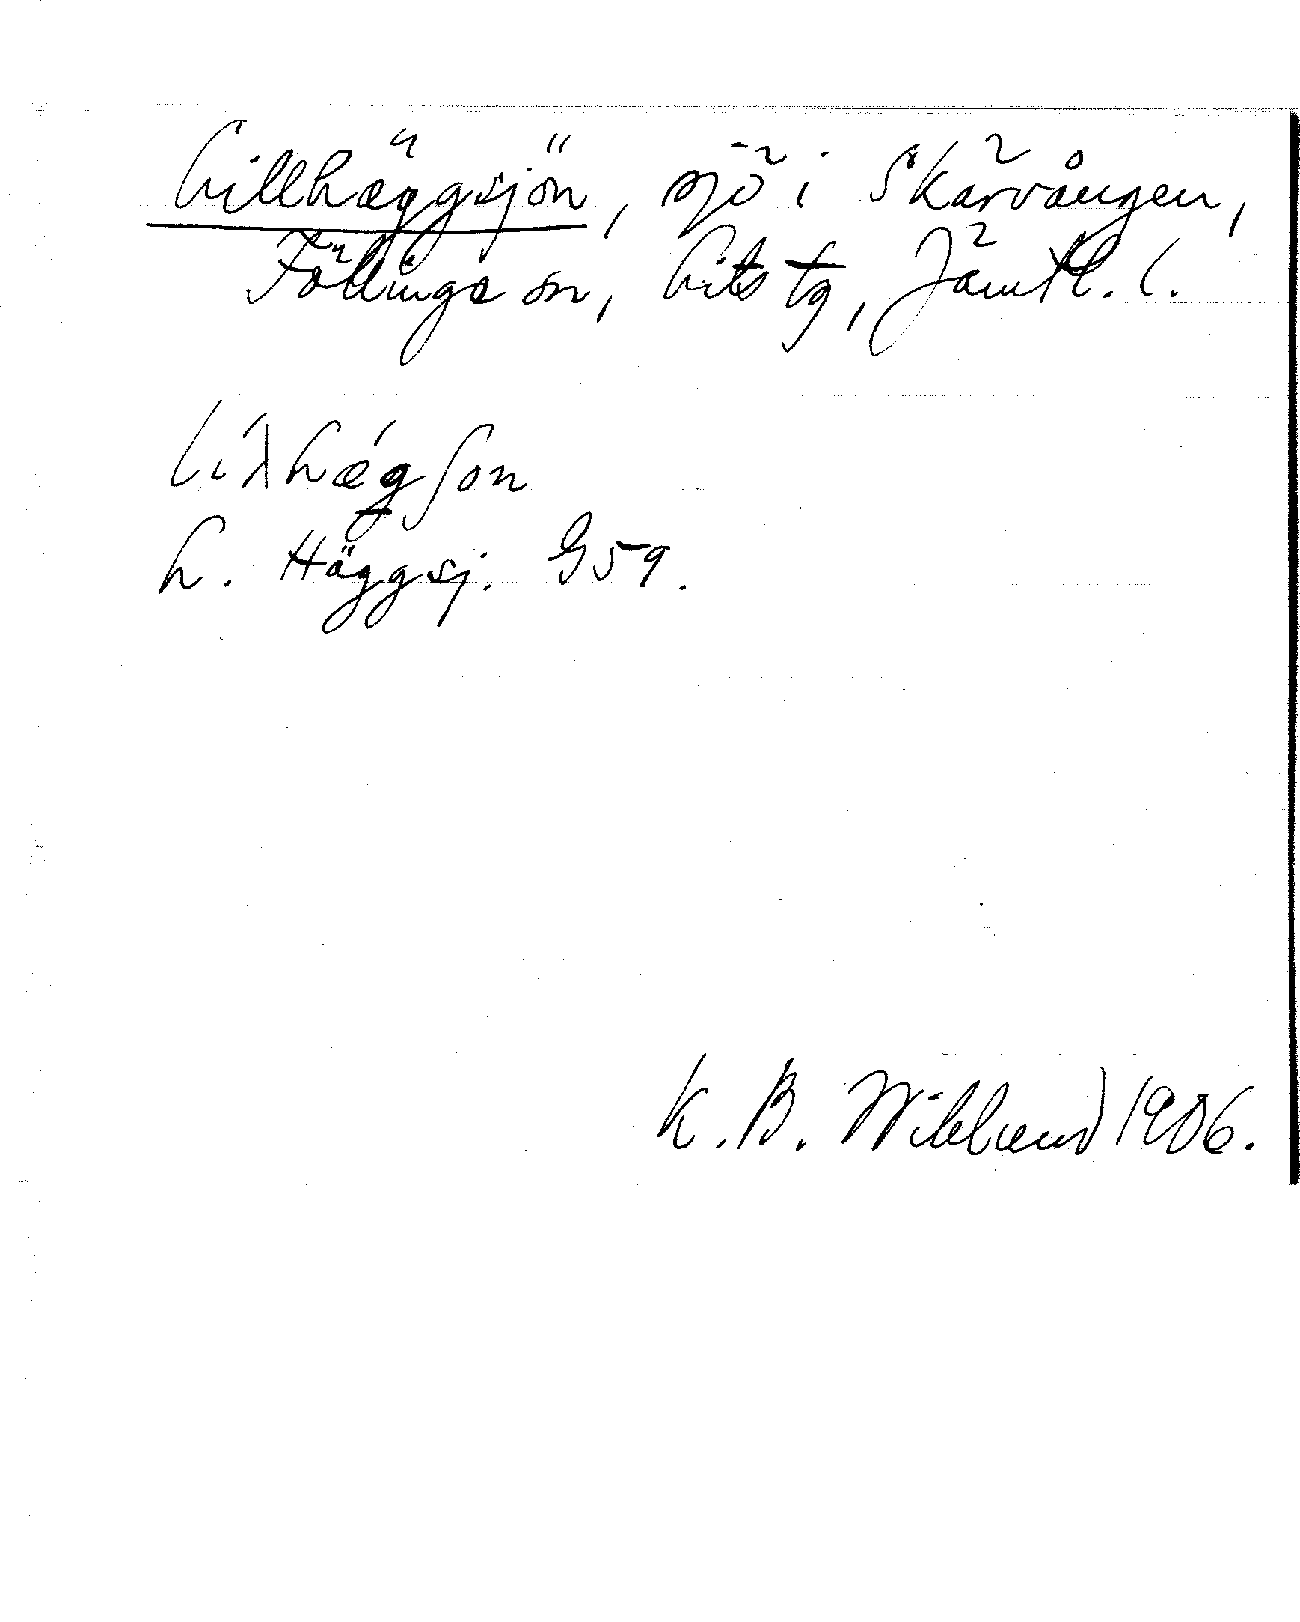 Lillhäggsjön, sjö i Skärvången,
Föllinge sn, Lits tg, Jämtl. l.
L. Häggsj. G59.
K. B. Wiklund 1906.